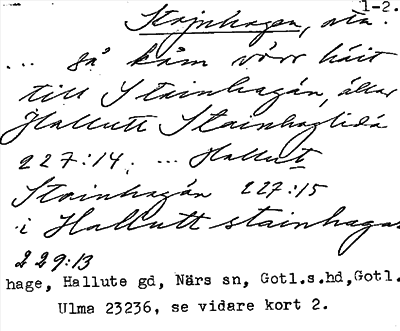 1-2.
Stajnhagen, ota.
... gå kåm vörr häit
till Stainhagån, ällar
Hallutt Stainhaglidå
227:14. ... Hallut
Stainhagån 227:15
i Hallutt stainhagas
229:13
hage, Hallute gd, Närs sn, Gotl.s.hd,Gotl.
Ulma 23236, se vidare kort 2.